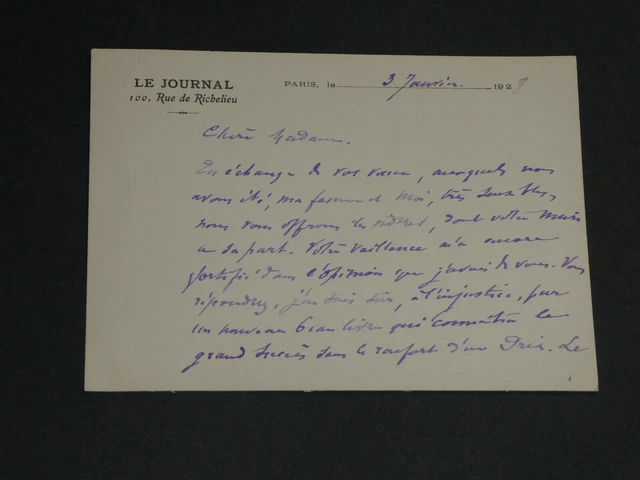 LE JOURNAL
100, Rue de Richelieu
PARIS, le 3 Janvier 192
Chère Madame.
En échange de vos vœux, auxquels nous
avons été, ma femme et moi, très sensibles,
nous vous offrons les nôtres, dont votre
a sa part. Votre vaillance m'a encore
fortifié dans l'opinion que j'avais de vous. Vous
répondrez, j'en suis sûr, à l'injustice, par
un nouveau beau livre qui connaîtra le
grand succès sans le renfort d'un Prix. Le